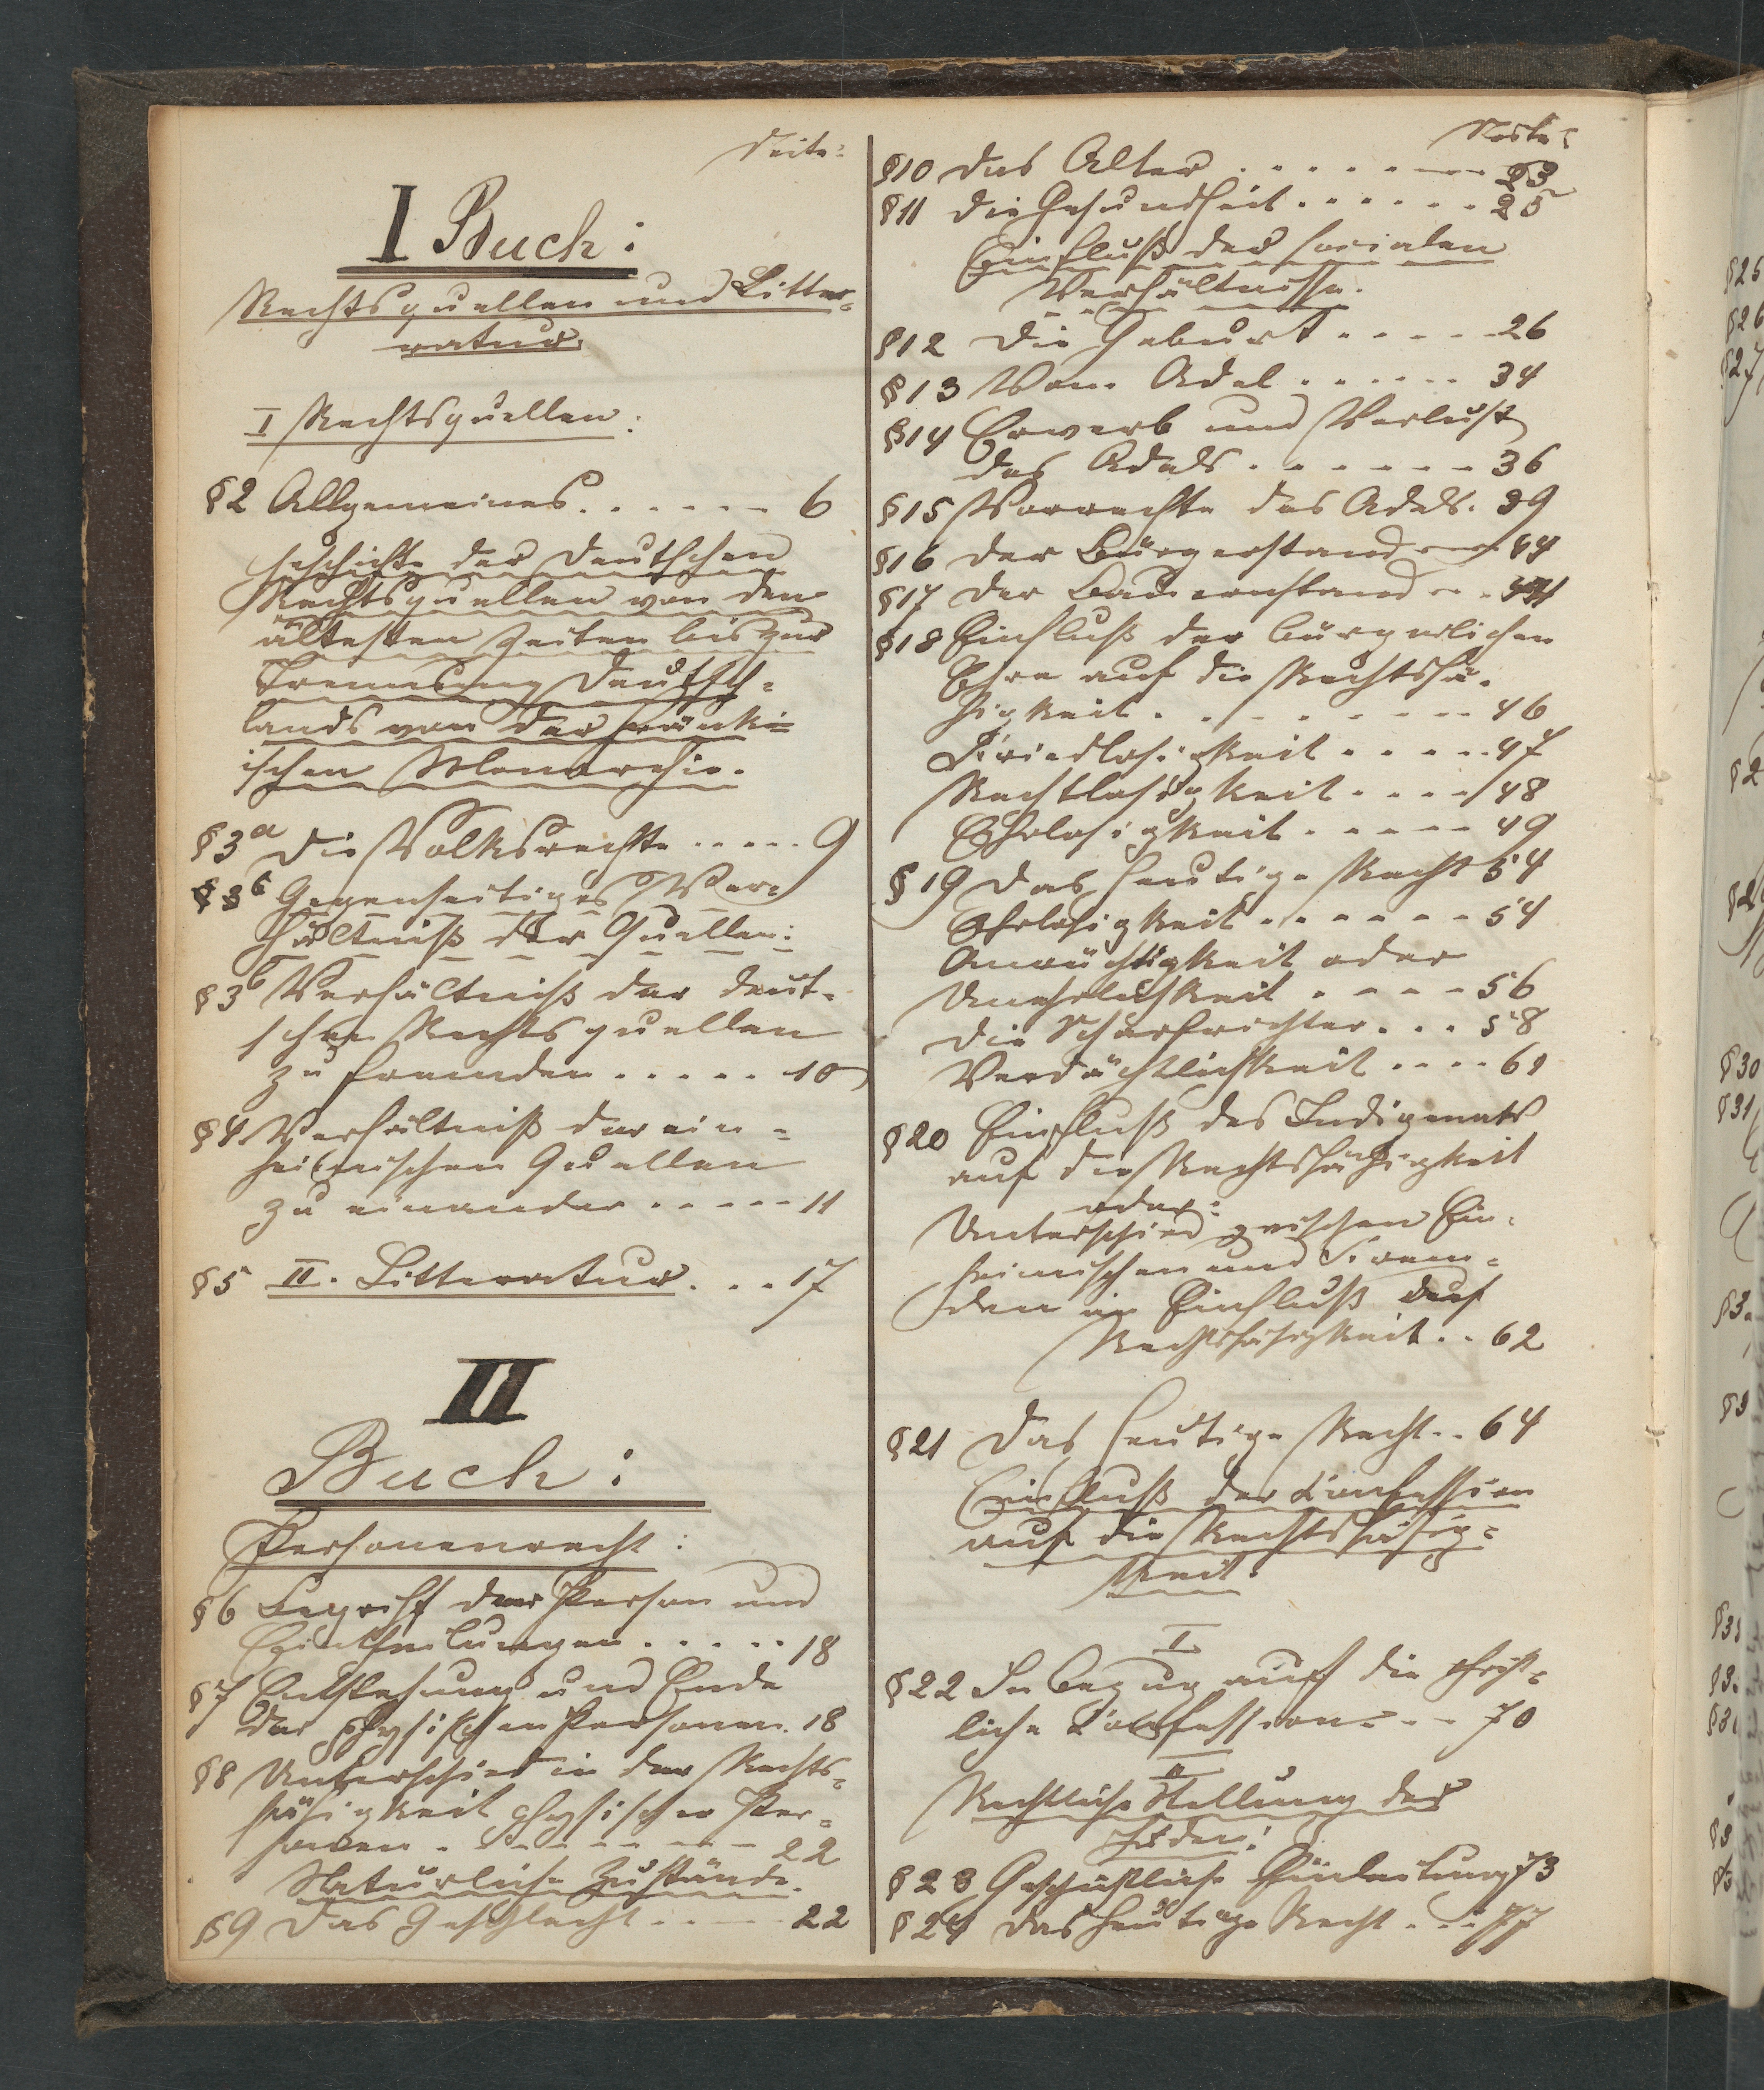 Seite:
I Buch:
Rechtsquellen und Litte-
ratur.
I Rechtsquellen:
§2 Allgemeines. . . . . . 6
Geschichte der deutschen
Rechtsquellen von den
ältesten Zeiten bis zur
Trennung Deutsch-
lands von der fränki-
schen Monarchie.
§3a Die Volksrechte . . . . . 9
§3b Gegenseitiges Ver-
hältniß der Quellen:
§3b Verhältniß der deut-
schen Rechtsquellen
zu fremden . . . . . 10
§4 Verhältniß der ein-
heimischen Quellen
zu einander . . . . . 11
§5 II. Litteratur. . . . 17
II
Buch:
Personenrecht:
§6 Begriff der Person und
Eintheilungen . . . . . 18
§7 Entstehung und Ende
der physischen Personen. 18
§8 Unterschied in der Rechts-
fähigkeit physischer Per-
sonen . . . . . . . 22
Natürliche Zustände.
§9 Das Geschlecht . . . . 22
Seite:
§10 Das Alter . . . . . . . 23
§11 Die Gesundheit . . . . . . 25
Einfluß der socialen
Verhältnisse.
§12 Die Geburt . . . . . 26
§13 Vom Adel . . . . . . 34
§14 Erwerb und Verlust
des Adels . . . . . . . 36
§15 Vorrechte des Adels. 39
§16 Der Bürgerstand . . . 44
§17 Der Bauernstand . . .
§18 Einfluß der bürgerlichen
Ehre auf die Rechtsfä-
higkeit . . . . . . . . 46
Friedlosigkeit . . . . . 47
Rechtlosigkeit . . . . 48
Ehrlosigkeit . . . . . 49
§19 Das heutige Recht 54
Ehrlosigkeit . . . . . . 54
Anrüchtigkeit oder
Unehrlichkeit . . . . 56
Die Scharfrichter . . . 58
Verdächtlichkeit . . . . 61
§20 Einfluß des Indigenats
auf die Rechtsfähigkeit
oder:
Unterschied zwischen Ein-
heimischen und Frem-
den in Einfluß auf
Rechtsfähigkeit . . 62
§21 Das heutige Recht . . 64
Einfluß der Confession
auf die Rechtsfähig-
keit.
I
§22 In Bezug auf die christ-
liche Confession . . . 70
II
Rechtliche Stellung der
Juden:
§23 Geschichtliche Einleitung 73
§24 Das heutige Recht . . . 77